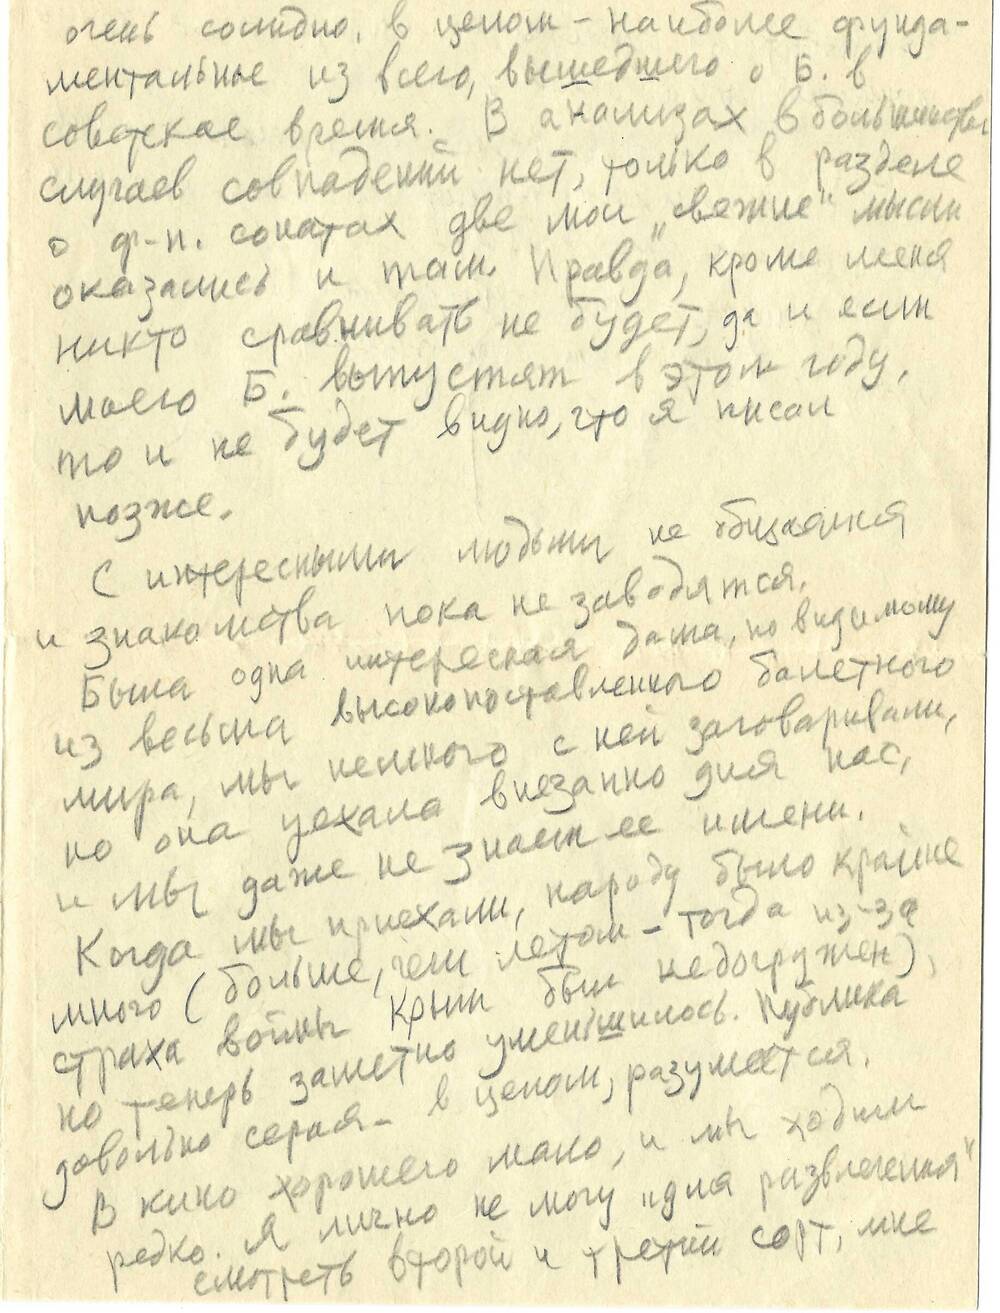 очень солидно, в целом – наиболее фунда-
ментальные из всего, вышедшего о Б. в
советское время. В анализах в большинстве
случаев совпадений нет, только в разделе
о ф-п. сонатах две мои „свежие" мысли
оказались и там. Правда, кроме меня
никто сравнивать не будет, да и если
моего Б. выпустят в этом году,
то и не будет видно, что я писал
позже.
С интересными людьми не общаемся
и знакомства пока не заводятся.
Была одна интересная дама, по видимому
из весьма высокопоставленного балетного
мира, мы немного с ней заговаривали,
но она уехала внезапно для нас,
и мы даже не знаем ее имени.
Когда мы приехали, народу было крайне
много (больше, чем летом – тогда из-за
страха войны Крым был недогружен),
но теперь заметно уменьшилось. Публика
довольно серая – в целом, разумеется.
В кино хорошего мало, и мы ходим
редко. Я лично не могу „для развлечения"
смотреть второй и третий сорт, мне